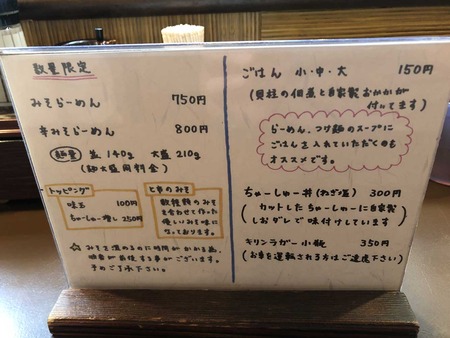 数量限定
みそらーめん 750円
辛みそらーめん 800円
麺量 並140g 大盛210g
(麺大盛同料金)
トッピング
味玉 100円
ちゃーしゅー増し 250円
とゝのみそ
数種類のみそ
を合わせて作った
優しいみそ味に
なっております。
☆みそを温めるのに時間がかかる為、
順番が前後する事がございます。
予めご了承下さい。
ごはん 小・中・大 150円
(貝柱の佃煮と自家製おかかが
付いてます)
らーめん、つけ麺のスープに
ごはんを入れていただくのも
オススメです。
ちゃーしゅー丼(ねぎ塩) 300円
(カットしたちゃーしゅーに自家製
しおダレで味付けしています
キリンラガー小瓶 350円
(お車を運転される方はご遠慮下さい)